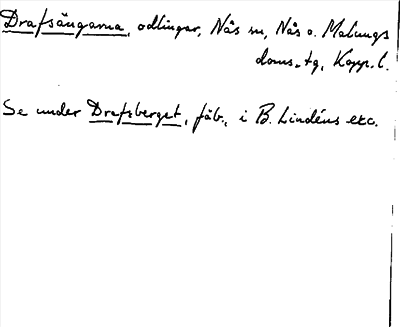 Drafsängarna, odlingar, Nås sn, Nås o. Malungs
doms.tg, Kopp. l.
Se under Drafsberget, fäb., i B. Lindéns exc.